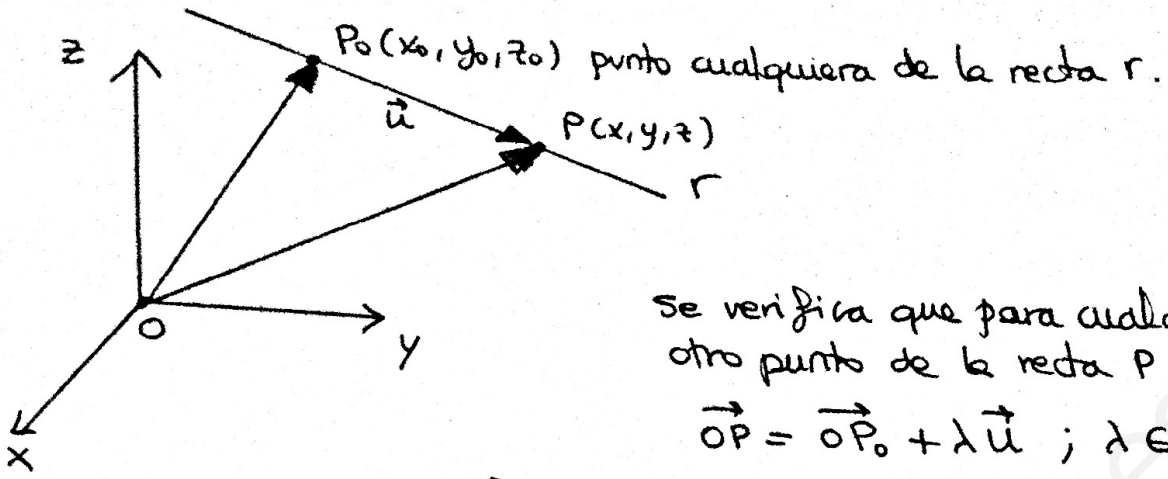 z
P₀(x₀, y₀, z₀) punto cualquiera de la recta r.
u⃗
P(x, y, z)
r
O
y
x
se verifica que para
otro punto de la recta P
OP⃗ = OP₀⃗ + λu⃗ ; λ ∈